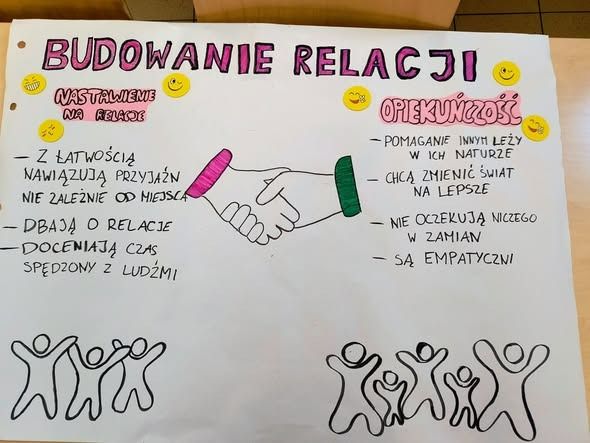 BUDOWANIE RELACJI
NASTAWIENIE
NA RELACJE
— Z ŁATWOŚCIĄ
NAWIĄZUJĄ PRZYJAŹN
NIE ZALEŻNIE OD MIEJSCA
— DBAJĄ O RELACJE
— DOCENIAJĄ CZAS
SPĘDZONY Z LUDŹMI
OPIEKUŃCZOŚĆ
— POMAGANIE INNYM LEŻY
W ICH NATURZE
— CHCĄ ZMIENIĆ ŚWIAT
NA LEPSZE
— NIE OCZEKUJĄ NICZEGO
W ZAMIAN
— SĄ EMPATYCZNI